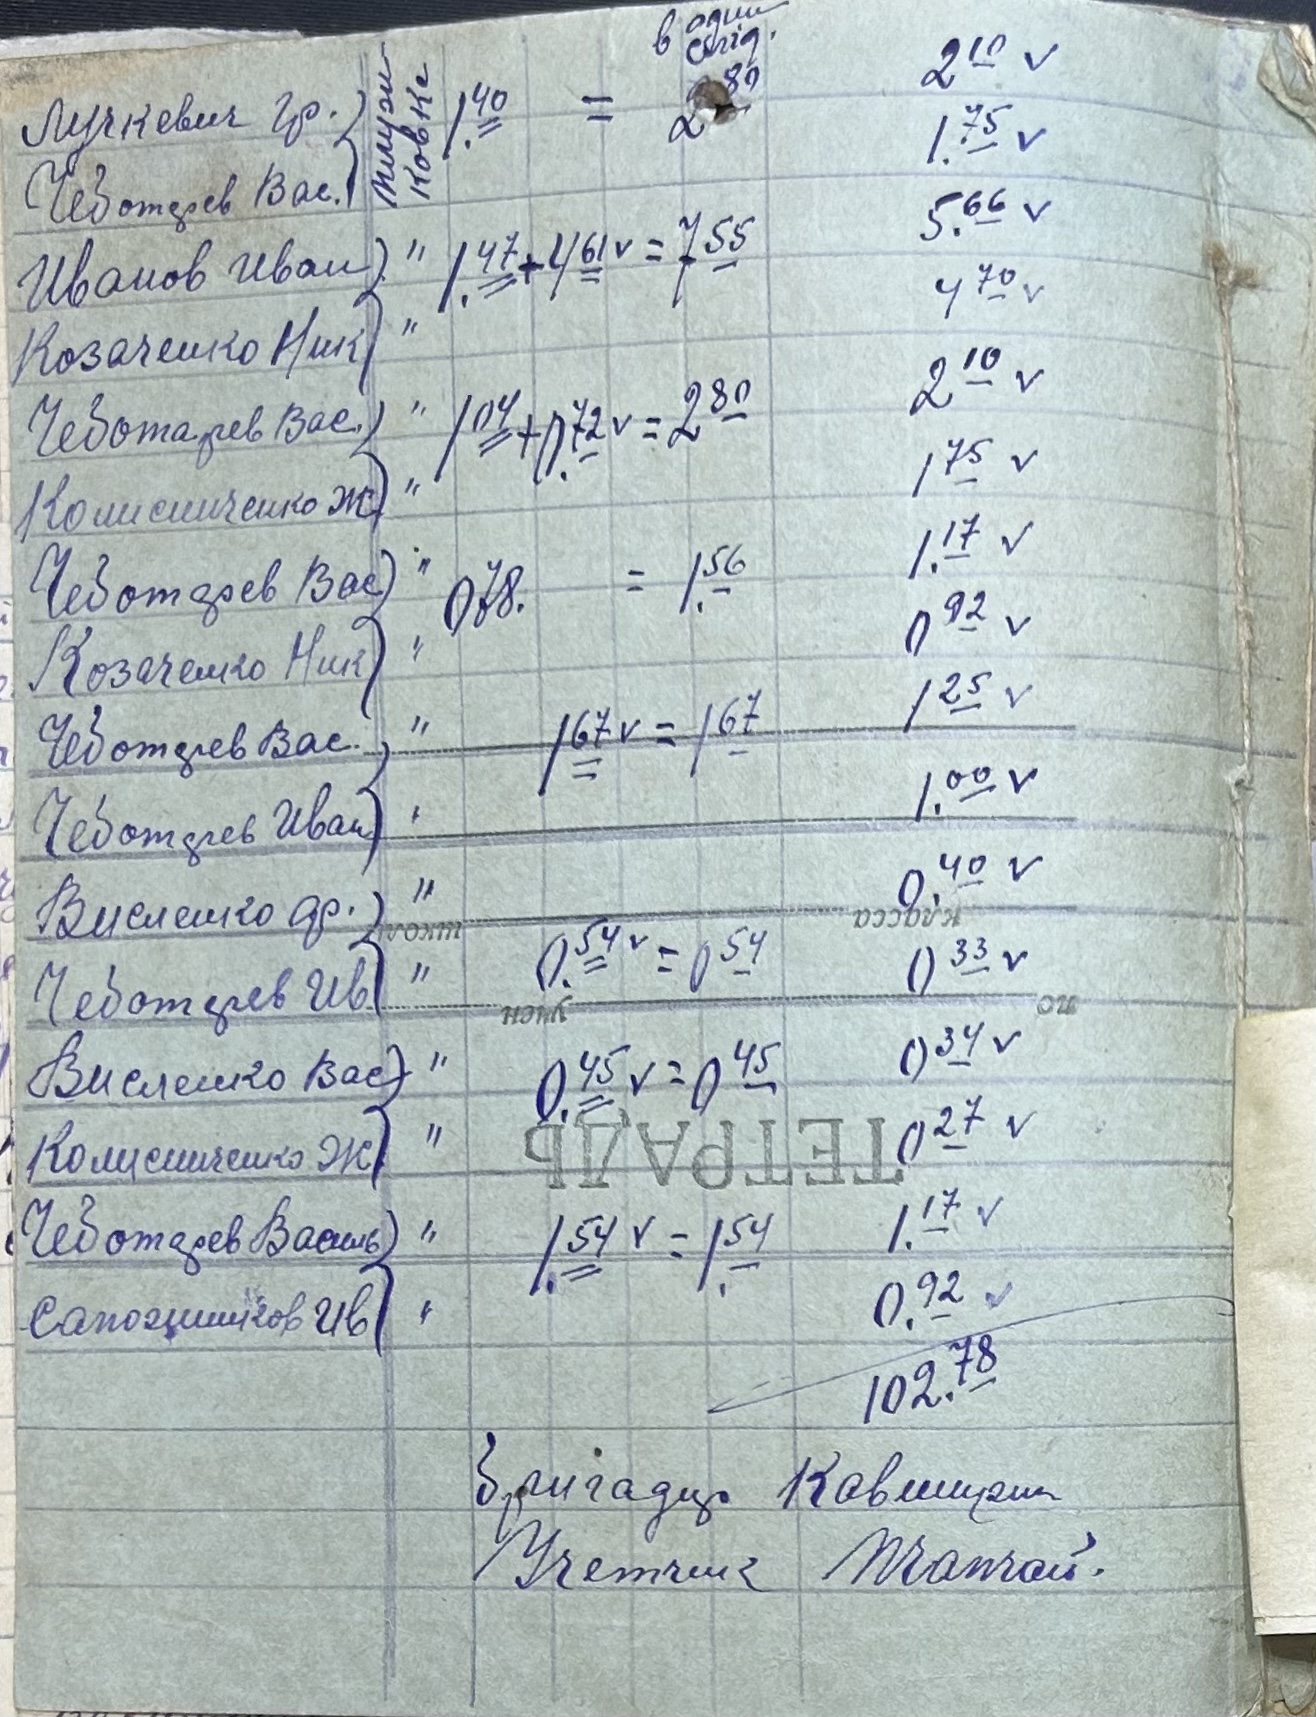 в один
Лучкевич Гр. 1.40 = 2 80 2 10 v
Чеботарев Вас. 1.75 v
Иванов Иван " 1.47 + 4 61 v = 7 55 5.66 v
Козаченко Ник " 4 70 v
Чеботарев Вас. " 1 04 + 0.72 v = 2 80 2 10 v
Колисниченко Ж " 1 75 v
Чеботарев Вас " 0 78. = 1.56 1.17 v
Козаченко Ник " 0 92 v
Чеботарев Вас. " 1 67 v = 1 67 1 25 v
Чеботарев Иван " 1.00 v
Висленко Фр. " 0.40 v
школы класса
Чеботарев Ив " 0.54 v = 0 54 0 33 v
учен по
Висленко Вас " 0.45 v = 0 45 0 34 v
Колисниченко Ж " 0 27 v
ТЕТРАДЬ
Чеботарев Василь " 1.54 v = 1.54 1.17 v
Сапожников Ив " 0.92 v
102.78
Бригадир
Учетчик